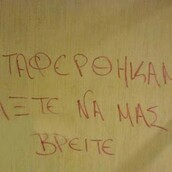 ΤΑΦΕΡΘΗΚΑΜ
ΑΞΤΕ ΝΑ ΜΑΣ
ΒΡΕΙΤΕ